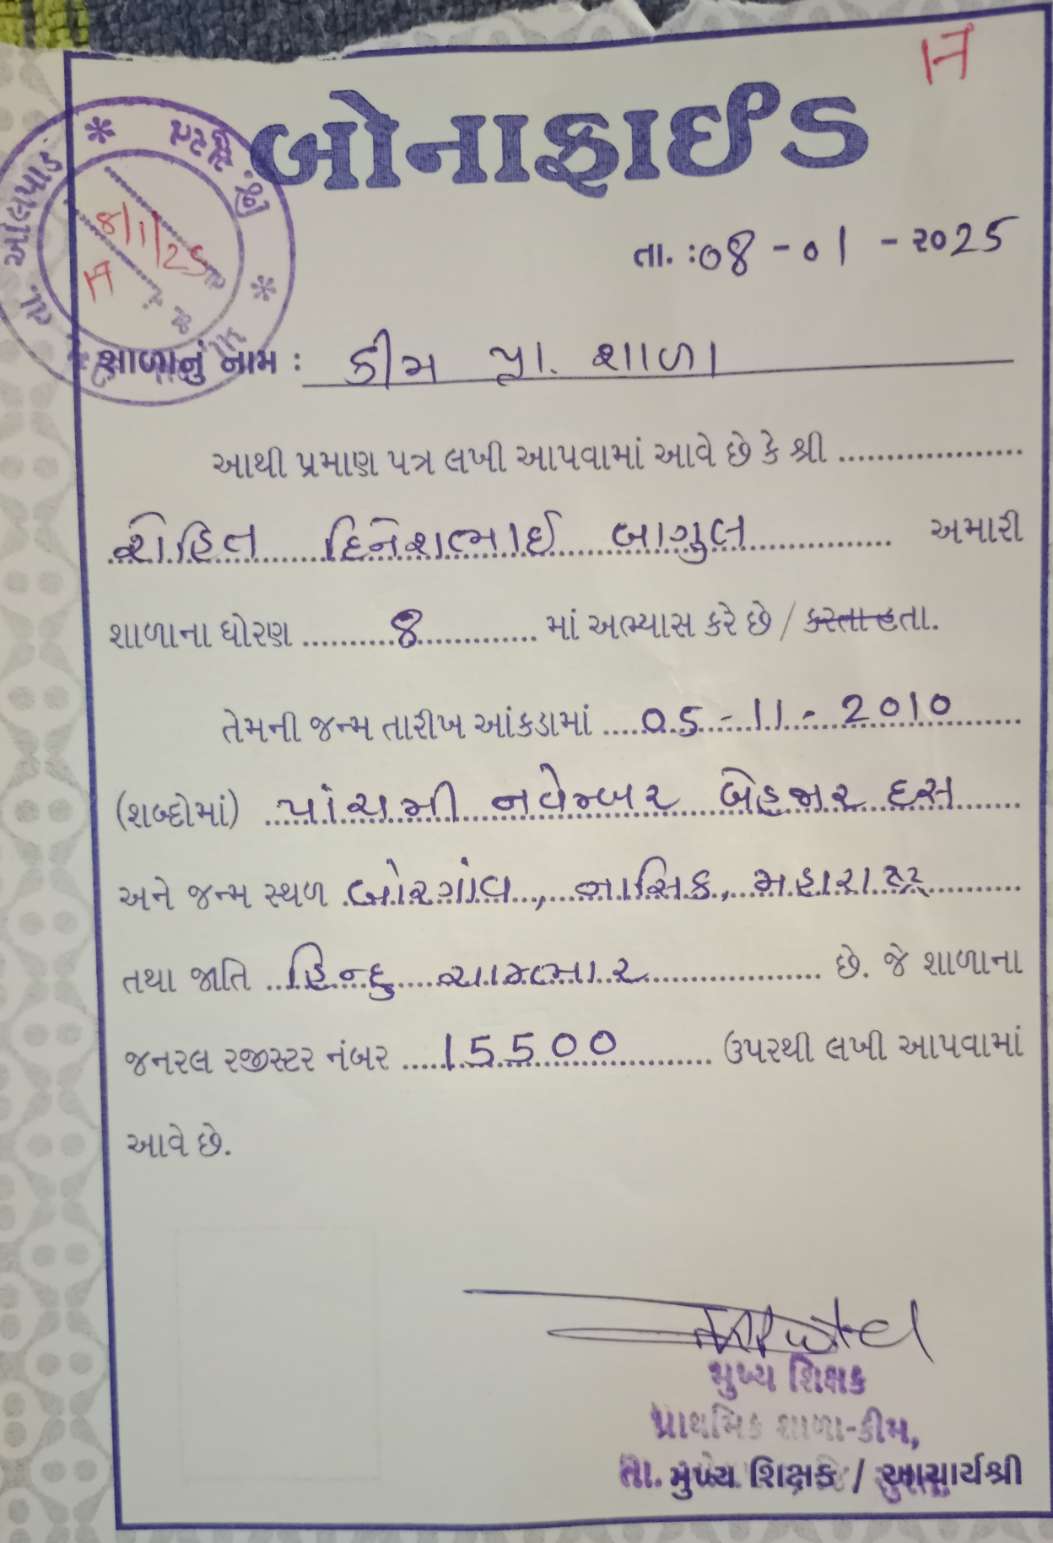 17
બોનાફાઈડ
તા. : 08 - 01 - ૨૦25
તા. ઓલપાડ * જી. સુરત *
8/1/25
શાળાનું નામ : કીમ પ્રા. શાળા
આથી પ્રમાણ પત્ર લખી આપવામાં આવે છે કે શ્રી ..................
રોહિત દિનેશભાઈ બાગુલ અમારી
શાળાના ધોરણ 8 માં અભ્યાસ કરે છે / કરતા હતા.
તેમની જન્મ તારીખ આંકડામાં 05 - 11 - 2010
(શબ્દોમાં) પાંચમી નવેમ્બર બેહજાર દસ
અને જન્મ સ્થળ બોરગાંવ, નાસિક, મહારાષ્ટ્ર
તથા જાતિ હિન્દુ ચામભાર છે. જે શાળાના
જનરલ રજીસ્ટર નંબર 15500 ઉપરથી લખી આપવામાં
આવે છે.
મુખ્ય શિક્ષક
પ્રાથમિક શાળા-કીમ,
તા.
મુખ્ય શિક્ષક / આચાર્યશ્રી